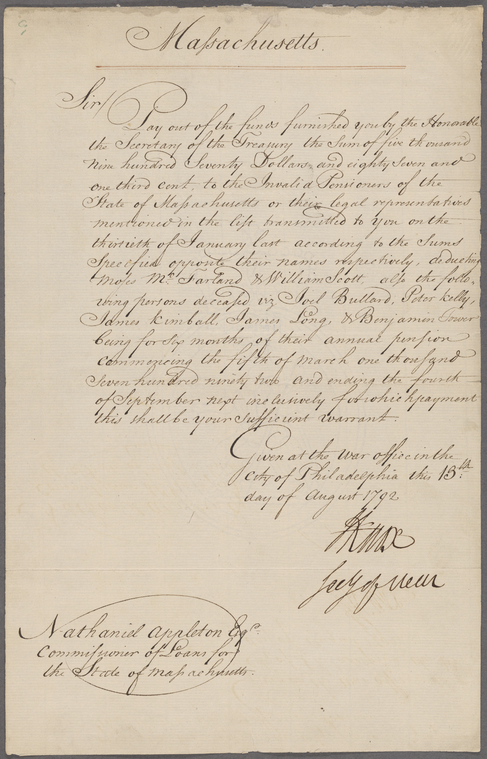 Massachusetts.
Sir/
Pay out of the funds furnished you by the Honorable
the Secretary of the Treasury the sum of five thousand
nine hundred Seventy Dollars and eighty seven and
one third cent, to the Invalid Pensioners of the
State of Massachusetts or their legal representatives
mentioned in the list transmitted to you on the
thirtieth of January last according to the Sums
Specified opposite their names respectively, deducting
Moses McFarland & William Scott, also the follo-
wing persons deceas'd viz Joel Bullard, Peter Kelly,
James Kimball, James Long, & Benjamin Tower
being for Six months of their annual pension
commencing the fifth of March one thousand
Seven hundred ninety two and ending the fourth
of September next inclusively for which payment
this shall be your sufficient warrant.
Given at the War office in the
City of Philadelphia this 13th
day of August 1792
HKnox
Secy of War
Nathaniel Appleton Esqr.
Commissioner of Loans for
the State of Massachusetts.